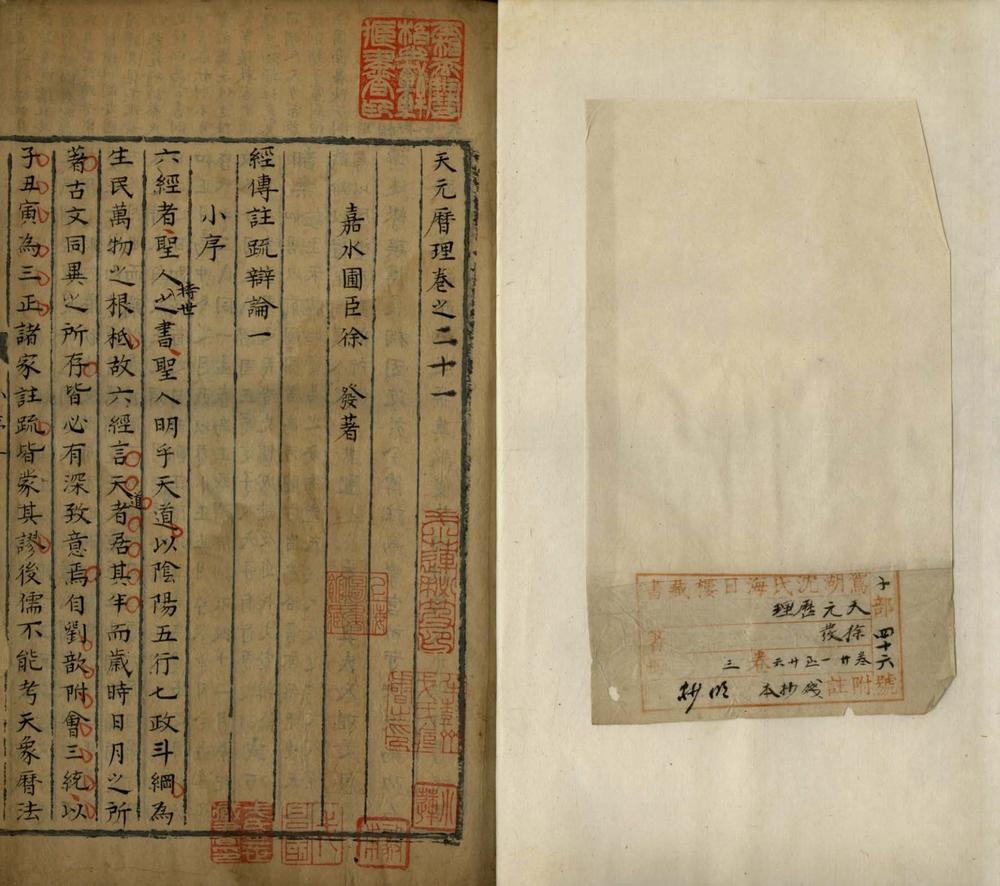 鴛湖沈氏海日樓藏書
子部 四十六號
天元歷理
徐發
卷廿一至廿六
三
附註
殘抄本
明抄
天元曆理卷之二十一
嘉水圃臣徐 發著
經傳註疏辯論一
小序
六經者聖人之書聖人明乎天道以陰陽五行七政斗綱為
持世
生民萬物之根柢故六經言天者居其半而歲時日月之所
道
著古文同異之所存皆必有深致意焉自劉歆附會三統以
子丑寅為三正諸家註疏皆蒙其謬後儒不能考天象曆法